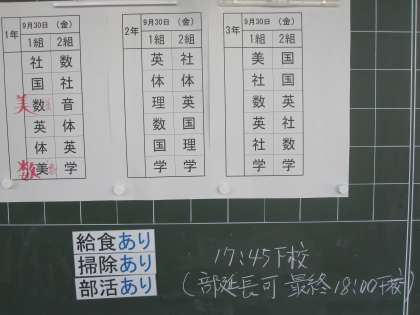 1年 9月30日 (金)
1組 2組
社 数
国 社
美 数 音
英 体
体 英
数 美 学
2年 9月30日 (金)
1組 2組
英 社
体 体
理 英
数 国
国 理
学 学
3年 9月30日 (金)
1組 2組
美 国
社 国
数 英
英 社
社 数
学 学
給食あり
掃除あり
部活あり
17:45下校
(部延長可 最終18:00下校)